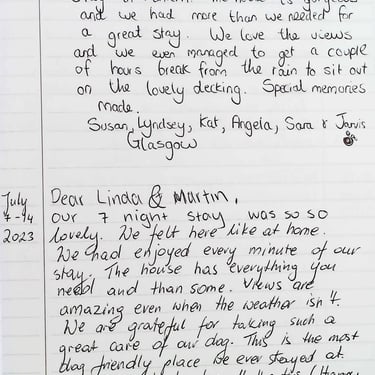 and we had more than we needed for
a great stay. We love the views
and we even managed to get a couple
of hours break from the rain to sit out
on the lovely decking. Special memories
made.
Susan, Lyndsey, Kat, Angela, Sara & Jarvis
Glasgow
July
7-14
2023
Dear Linda & Martin,
our 7 night stay was so so
lovely. We felt here like at home.
We had enjoyed every minute of our
stay. The house has everything you
need and than some. Views are
amazing even when the weather isn't.
We are grateful for taking such a
great care of our dog. This is the most
dog friendly place we ever stayed at.